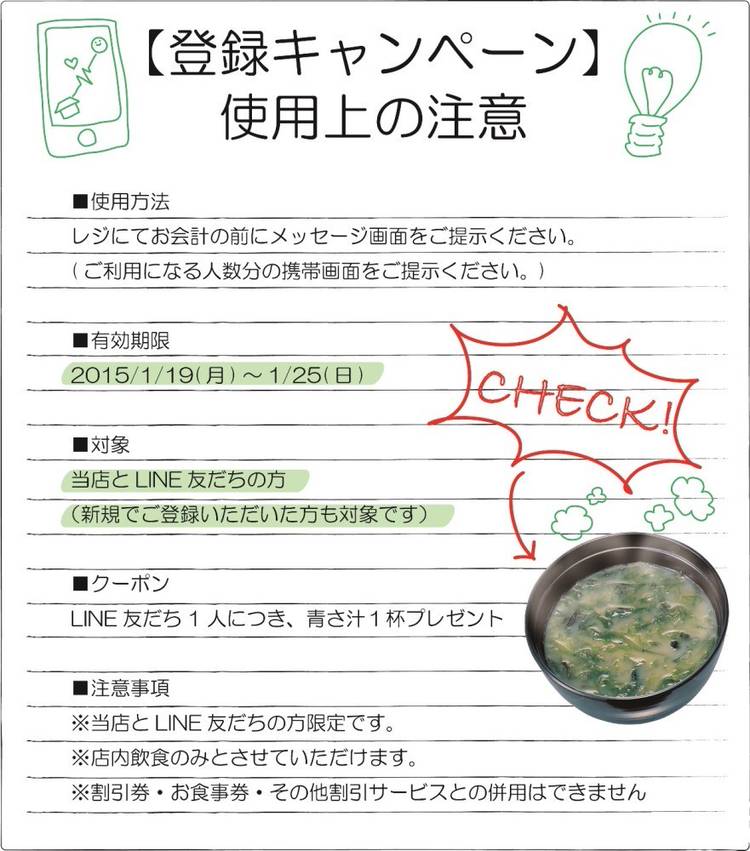 【登録キャンペーン】
使用上の注意
■使用方法
レジにてお会計の前にメッセージ画面をご提示ください。
(ご利用になる人数分の携帯画面をご提示ください。)
■有効期限
2015/1/19(月)～1/25(日)
CHECK!
■対象
当店とLINE友だちの方
(新規でご登録いただいた方も対象です)
■クーポン
LINE友だち1人につき、青さ汁1杯プレゼント
■注意事項
※当店とLINE友だちの方限定です。
※店内飲食のみとさせていただけます。
※割引券・お食事券・その他割引サービスとの併用はできません